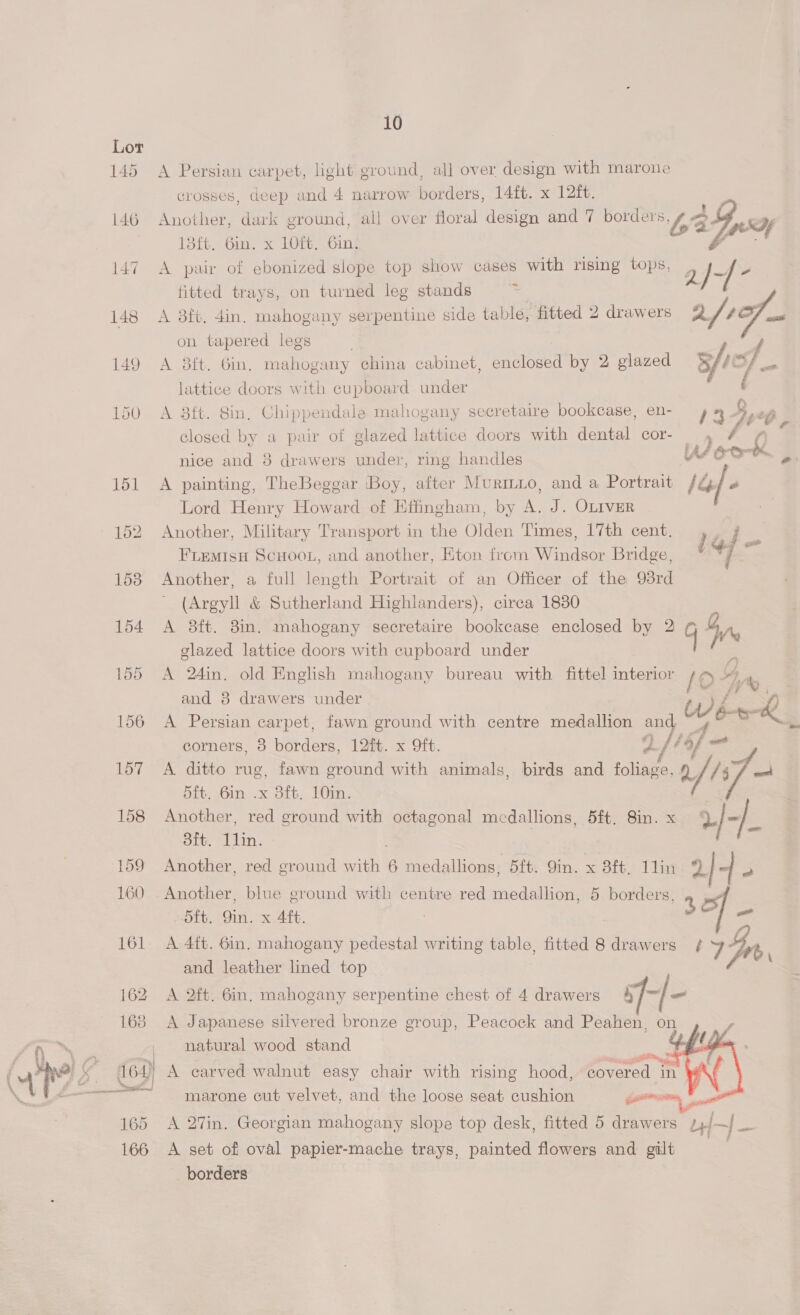 10
Lot
145 A Persian carpet, light ground, all over design with marone
crosses, deep and 4 narrow borders, 14ft. x 12ft.
146 Another, dark ground, all over floral design and 7 borders,
13ft. 6in. x 10ft. 6in.
147 A pair of ebonized slope top show cases with rising tops, 2/-/-
fitted trays, on turned leg stands
148 A 3ft. 4in. mahogany serpentine side table, fitted 2 drawers 2/10/-
on tapered legs
149 A 3ft. 6in. mahogany china cabinet, enclosed by 2 glazed 3/10/-
lattice doors with cupboard under
150 A 3ft. 8in. Chippendale mahogany secretaire bookcase, en-
closed by a pair of glazed lattice doors with dental cor-
nice and 3 drawers under, ring handles
151 A painting, TheBeggar Boy, after MURILLO, and a Portrait
Lord Henry Howard of Effingham, by A. J. OLIVER
152 Another, Military Transport in the Olden Times, 17th cent.
FLEMISH SCHOOL, and another, Eton from Windsor Bridge,
153 Another, a full length Portrait of an Officer of the 93rd
(Argyll & Sutherland Highlanders), circa 1830
154 A 3ft. 3in. mahogany secretaire bookcase enclosed by 2
glazed lattice doors with cupboard under
155 A 24in. old English mahogany bureau with fittel interior
and 3 drawers under
156 A Persian carpet, fawn ground with centre medallion and
corners, 3 borders, 12ft. x 9ft.
157 A ditto rug, fawn ground with animals, birds and foliage, 2/15/-
5ft. 6in .x 3ft. 10in.
158 Another, red ground with octagonal medallions, 5ft. 8in. x 2/-/-
3ft. 11in.
159 Another, red ground with 6 medallions, 5ft. 9in. x 3ft. 11in 2/-/-
160 Another, blue ground with centre red medallion, 5 borders,
5ft. 9in. x 4ft.
161 A 4ft. 6in. mahogany pedestal writing table, fitted 8 drawers
and leather lined top
162 A 2ft. 6in. mahogany serpentine chest of 4 drawers
163 A Japanese silvered bronze group, Peacock and Peahen, on
natural wood stand
164 A carved walnut easy chair with rising hood, covered in
marone cut velvet, and the loose seat cushion
165 A 27in. Georgian mahogany slope top desk, fitted 5 drawers 4/-/-
166 A set of oval papier-mache trays, painted flowers and gilt
borders